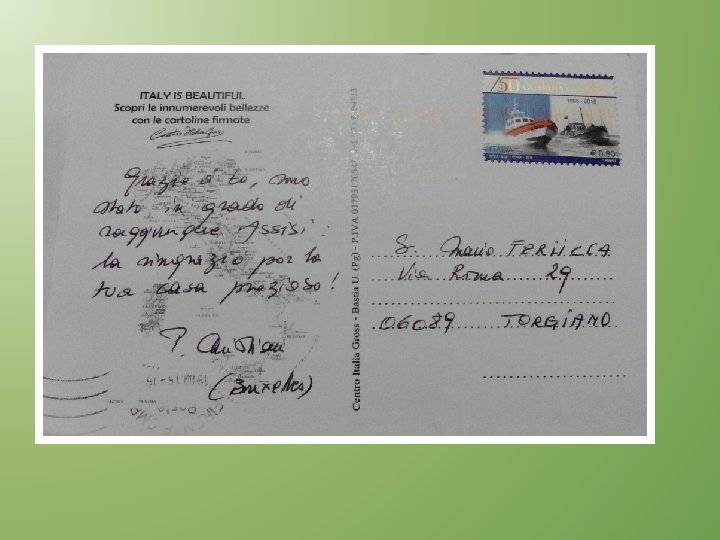 ITALY IS BEAUTIFUL
Scopri le innumerevoli bellezze
con le cartoline firmate
150
1865 - 2015
ITALIA
€ 0,80
Grazie a te, sono
stato in grado di
raggiungere Assisi.
la ringrazio por la
tua casa prezioso!
P. Christian
(Bruxelles)
Centro Italia Gross - Bastia U. (Pg) - P.IVA
Sr. Mario
Via Roma 29
06089 TORGIANO